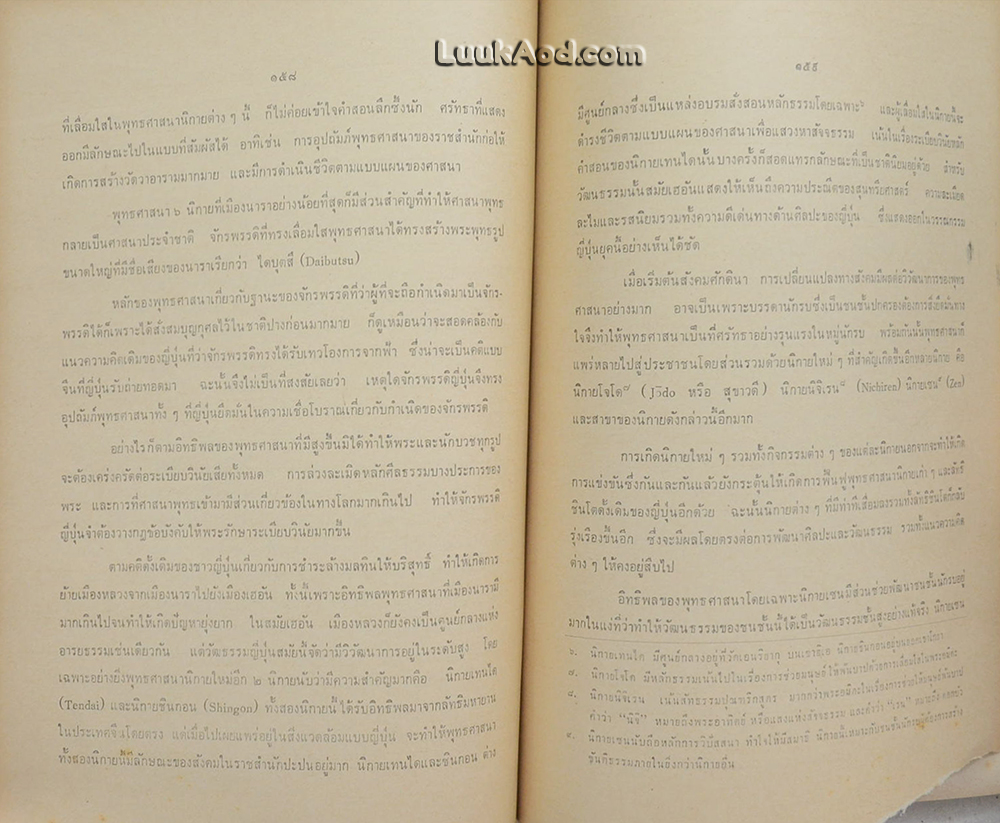 LuukAod.com
๑๕๘
ที่เลื่อมใสในพุทธศาสนานิกายต่าง ๆ นี้ ก็ไม่ค่อยเข้าใจคำสอนลึกซึ้งนัก ศรัทธาที่แสดง
ออกมีลักษณะไปในแบบที่สัมผัสได้ อาทิเช่น การอุปถัมภ์พุทธศาสนาของราชสำนักก่อให้
เกิดการสร้างวัดวาอารามมากมาย และมีการดำเนินชีวิตตามแบบแผนของศาสนา
พุทธศาสนา ๖ นิกายที่เมืองนาราอย่างน้อยที่สุดก็มีส่วนสำคัญที่ทำให้ศาสนาพุทธ
กลายเป็นศาสนาประจำชาติ จักรพรรดิที่ทรงเลื่อมใสพุทธศาสนาได้ทรงสร้างพระพุทธรูป
ขนาดใหญ่ที่มีชื่อเสียงของนาราเรียกว่า ไดบุตสึ (Daibutsu)
หลักของพุทธศาสนาเกี่ยวกับฐานะของจักรพรรดิที่ว่าผู้ที่จะถือกำเนิดมาเป็นจักร-
พรรดิได้ก็เพราะได้สั่งสมบุญกุศลไว้ในชาติปางก่อนมากมาย ก็ดูเหมือนว่าจะสอดคล้องกับ
แนวความคิดเดิมของญี่ปุ่นที่ว่าจักรพรรดิทรงได้รับเทวโองการจากฟ้า ซึ่งน่าจะเป็นคติแบบ
จีนที่ญี่ปุ่นรับถ่ายทอดมา ฉะนั้นจึงไม่เป็นที่สงสัยเลยว่า เหตุใดจักรพรรดิญี่ปุ่นจึงทรง
อุปถัมภ์พุทธศาสนาทั้ง ๆ ที่ญี่ปุ่นยึดมั่นในความเชื่อโบราณเกี่ยวกับกำเนิดของจักรพรรดิ
อย่างไรก็ตามอิทธิพลของพุทธศาสนาที่มีสูงขึ้นมิได้ทำให้พระและนักบวชทุกรูป
จะต้องเคร่งครัดต่อระเบียบวินัยเสียทั้งหมด การล่วงละเมิดหลักศีลธรรมบางประการของ
พระ และการที่ศาสนาพุทธเข้ามามีส่วนเกี่ยวข้องในทางโลกมากเกินไป ทำให้จักรพรรดิ
ญี่ปุ่นจำต้องวางกฎข้อบังคับให้พระรักษาระเบียบวินัยมากขึ้น
ตามคติดั้งเดิมของชาวญี่ปุ่นเกี่ยวกับการชำระล้างมลทินให้บริสุทธิ์ ทำให้เกิดการ
ย้ายเมืองหลวงจากเมืองนาราไปยังเมืองเฮอัน ทั้งนี้เพราะอิทธิพลพุทธศาสนาที่เมืองนารามี
มากเกินไปจนทำให้เกิดปัญหายุ่งยาก ในสมัยเฮอัน เมืองหลวงก็ยังคงเป็นศูนย์กลางแห่ง
อารยธรรมเช่นเดียวกัน แต่วัฒนธรรมญี่ปุ่นสมัยนี้จัดว่ามีวิวัฒนาการอยู่ในระดับสูง โดย
เฉพาะอย่างยิ่งพุทธศาสนานิกายใหม่อีก ๒ นิกายนับว่ามีความสำคัญมากคือ นิกายเทนได
(Tendai) และนิกายชินกอน (Shingon) ทั้งสองนิกายนี้ได้รับอิทธิพลมาจากลัทธิมหายาน
ในประเทศจีนโดยตรง แต่เมื่อไปเผยแพร่อยู่ในสิ่งแวดล้อมแบบญี่ปุ่น จะทำให้พุทธศาสนา
ทั้งสองนิกายนี้มีลักษณะของสังคมในราชสำนักปะปนอยู่มาก นิกายเทนไดและชินกอน ต่าง
๑๕๙
มีศูนย์กลางซึ่งเป็นแหล่งอบรมสั่งสอนหลักธรรมโดยเฉพาะ๖ และผู้เลื่อมใสในนิกายนี้จะ
ดำรงชีวิตตามแบบแผนของศาสนาเพื่อแสวงหาสัจจธรรม เน้นในเรื่องระเบียบวินัยหลัก
คำสอนของนิกายเทนไดนั้น บางครั้งก็สอดแทรกลักษณะที่เป็นชาตินิยมอยู่ด้วย สำหรับ
วัฒนธรรมนั้นสมัยเฮอันแสดงให้เห็นถึงความประณีตของสุนทรียศาสตร์ ความละเอียด
ละไมและรสนิยมรวมทั้งความดีเด่นทางด้านศิลปะของญี่ปุ่น ซึ่งแสดงออกในวรรณกรรม
ญี่ปุ่นยุคนี้อย่างเห็นได้ชัด
เมื่อเริ่มต้นสังคมศักดินา การเปลี่ยนแปลงทางสังคมมีผลต่อวิวัฒนาการของพุทธ
ศาสนาอย่างมาก อาจเป็นเพราะบรรดานักรบซึ่งเป็นชนชั้นปกครองต้องการสิ่งยึดมั่นทาง
ใจจึงทำให้พุทธศาสนาเป็นที่ศรัทธาอย่างรุนแรงในหมู่นักรบ พร้อมกันนั้นพุทธศาสนาก็
แพร่หลายไปสู่ประชาชนโดยส่วนรวมด้วยนิกายใหม่ ๆ ที่สำคัญเกิดขึ้นอีกหลายนิกาย คือ
นิกายโจโด๗ (Jōdo หรือ สุขาวดี) นิกายนิจิเรน๘ (Nichiren) นิกายเซน๙ (Zen)
และสาขาของนิกายดังกล่าวนี้อีกมาก
การเกิดนิกายใหม่ ๆ รวมทั้งกิจกรรมต่าง ๆ ของแต่ละนิกายนอกจากจะทำให้เกิด
การแข่งขันซึ่งกันและกันแล้วยังกระตุ้นให้เกิดการฟื้นฟูพุทธศาสนานิกายเก่า ๆ และลัทธิ
ชินโตดั้งเดิมของญี่ปุ่นอีกด้วย ฉะนั้นนิกายต่าง ๆ ที่มีท่าทีเสื่อมลงรวมทั้งลัทธิชินโตก็กลับ
รุ่งเรืองขึ้นอีก ซึ่งจะมีผลโดยตรงต่อการพัฒนาศิลปะและวัฒนธรรม รวมทั้งแนวความคิด
ต่าง ๆ ให้คงอยู่สืบไป
อิทธิพลของพุทธศาสนาโดยเฉพาะนิกายเซนมีส่วนช่วยพัฒนาชนชั้นนักรบอยู่
มากในแง่ที่ว่าทำให้วัฒนธรรมของชนชั้นนี้ได้เป็นวัฒนธรรมชั้นสูงอย่างแท้จริง นิกายเซน
๖. นิกายเทนได มีศูนย์กลางอยู่ที่วัดเอนริยากุ บนเขาฮิเอ นิกายชินกอนอยู่บนยอดเขาโกยา
๗. นิกายโจโด มีหลักธรรมเน้นไปในเรื่องการช่วยมนุษย์ให้พ้นบาปด้วยการเลื่อมใสในพระอมิดะ
๘. นิกายนิจิเรน เน้นสัทธรรมปุณฑริกสูตร มากกว่าพระอมิดะในเรื่องการช่วยให้มนุษย์พ้นบาป
คำว่า “นิจิ” หมายถึงพระอาทิตย์ หรือแสงแห่งสัจธรรม และคำว่า “เรน” หมายถึง ดอกบัว
๙. นิกายเซนนับถือหลักการวิปัสสนา ทำใจให้มีสมาธิ นิกายนี้เหมาะกับชนชั้นนักรบผู้ต้องการสร้าง
ขันติธรรมภายในยิ่งกว่านิกายอื่น